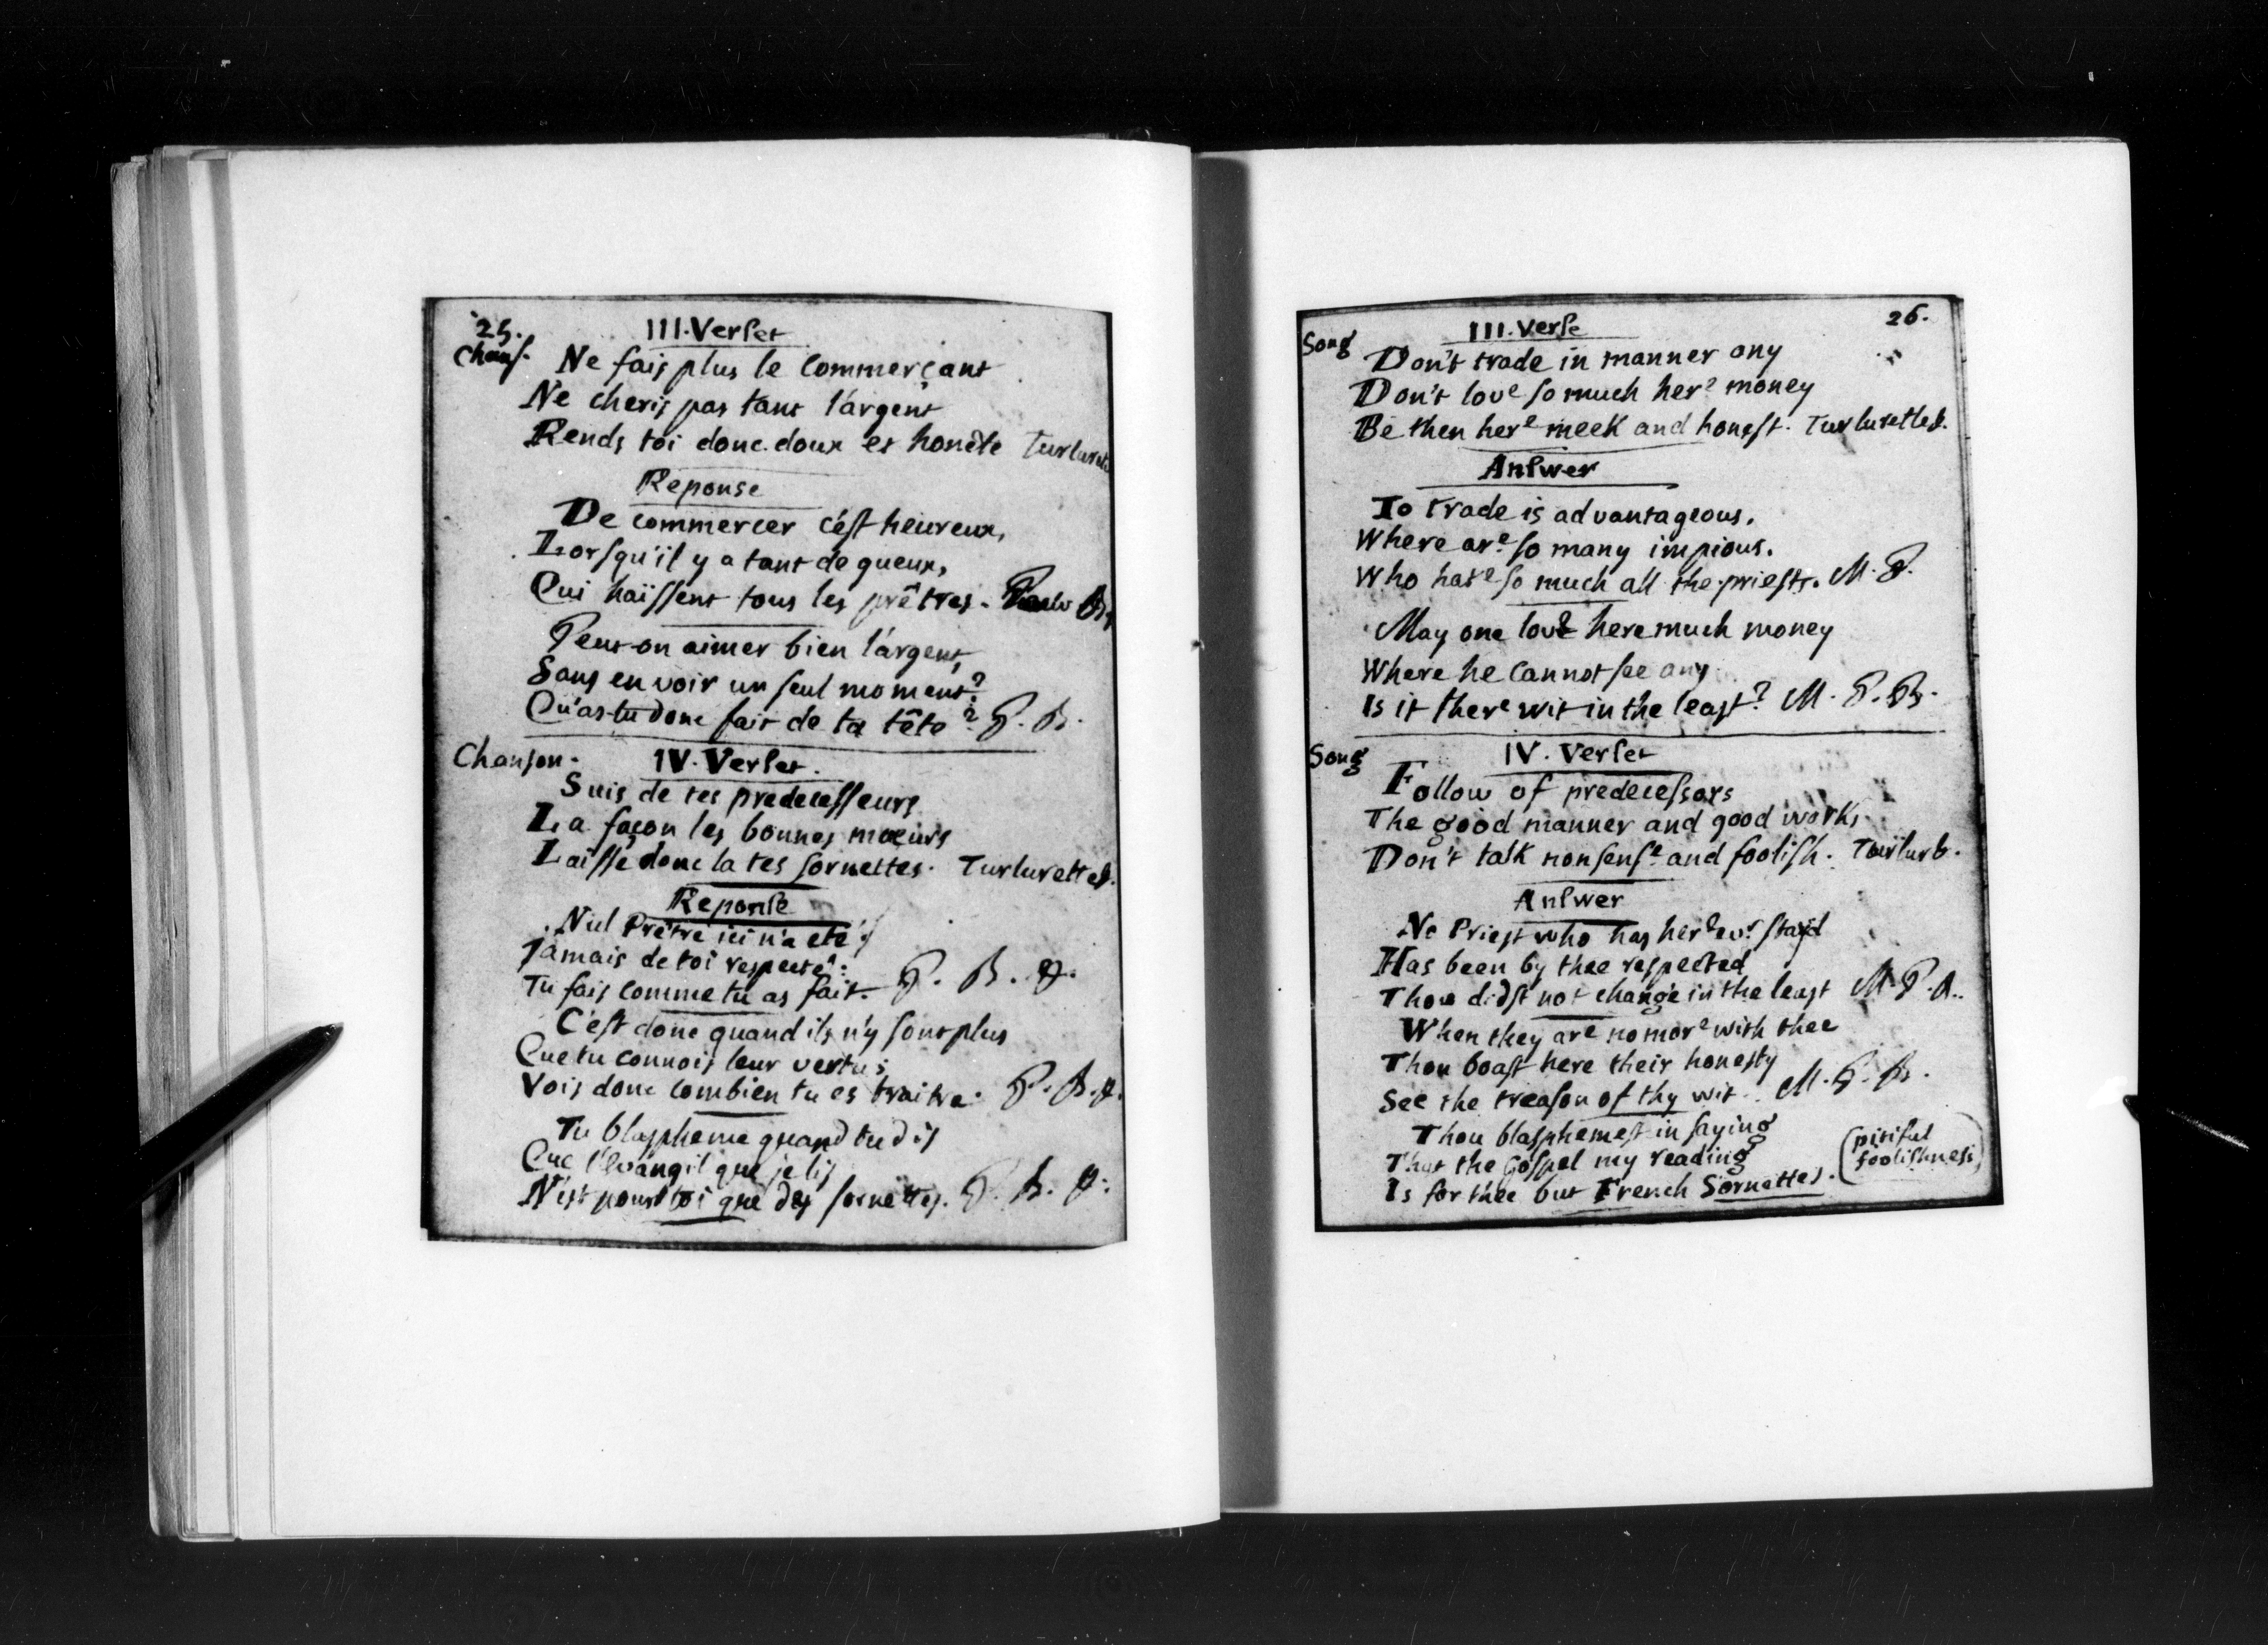 25.
III. Verset
Chans. Ne fais plus le Commerçant
Ne cheris pas tant l'argent
Rends toi donc doux et honête Turluret
Reponse
De commercer c'est heureux,
Lorsqu'il y a tant de gueux,
Qui haïssent tous les prêtres. B.
Peut on aimer bien l'argent,
Sans en voir un seul moment?
Qu'as-tu donc fait de ta tête? P. B.
Chanson. IV. Verset.
Suis de tes predecesseurs
La façon les bonnes mœurs
Laisse donc la tes sornettes. Turluretteb.
Reponse
Nul Prêtre ici n'a eté
Jamais de toi respecté:
Tu fais comme tu as fait. P. B. A.
C'est donc quand ils n'y sont plus
Que tu connois leur vertus
Vois donc combien tu es traitre. P. B. A.
Tu blaspheme quand tu dis
Que l'Evangil que je lis
N'est pour toi que des sornettes. P. B. A.
26.
III. Verse
Song Don't trade in manner any
Don't love so much here money
Be then here meek and honest. Turluretteb.
Answer
To trade is advantageous.
Where are so many impious.
Who hate so much all the priests. M. P.
May one love here much money
Where he cannot see any
Is it there wit in the least? M. P. B.
Song IV. Verset
Follow of predecessors
The good manner and good works
Don't talk nonsense and foolish. Turlurb.
Answer
No Priest who has here evr stayd
Has been by thee respected
Thou didst not change in the least M. P. A.
When they are no more with thee
Thou boast here their honesty
See the treason of thy wit. M. P. B.
Thou blasphemest in saying
That the Gospel my reading
Is for thee but French Sornettes. (pitiful
foolishness)